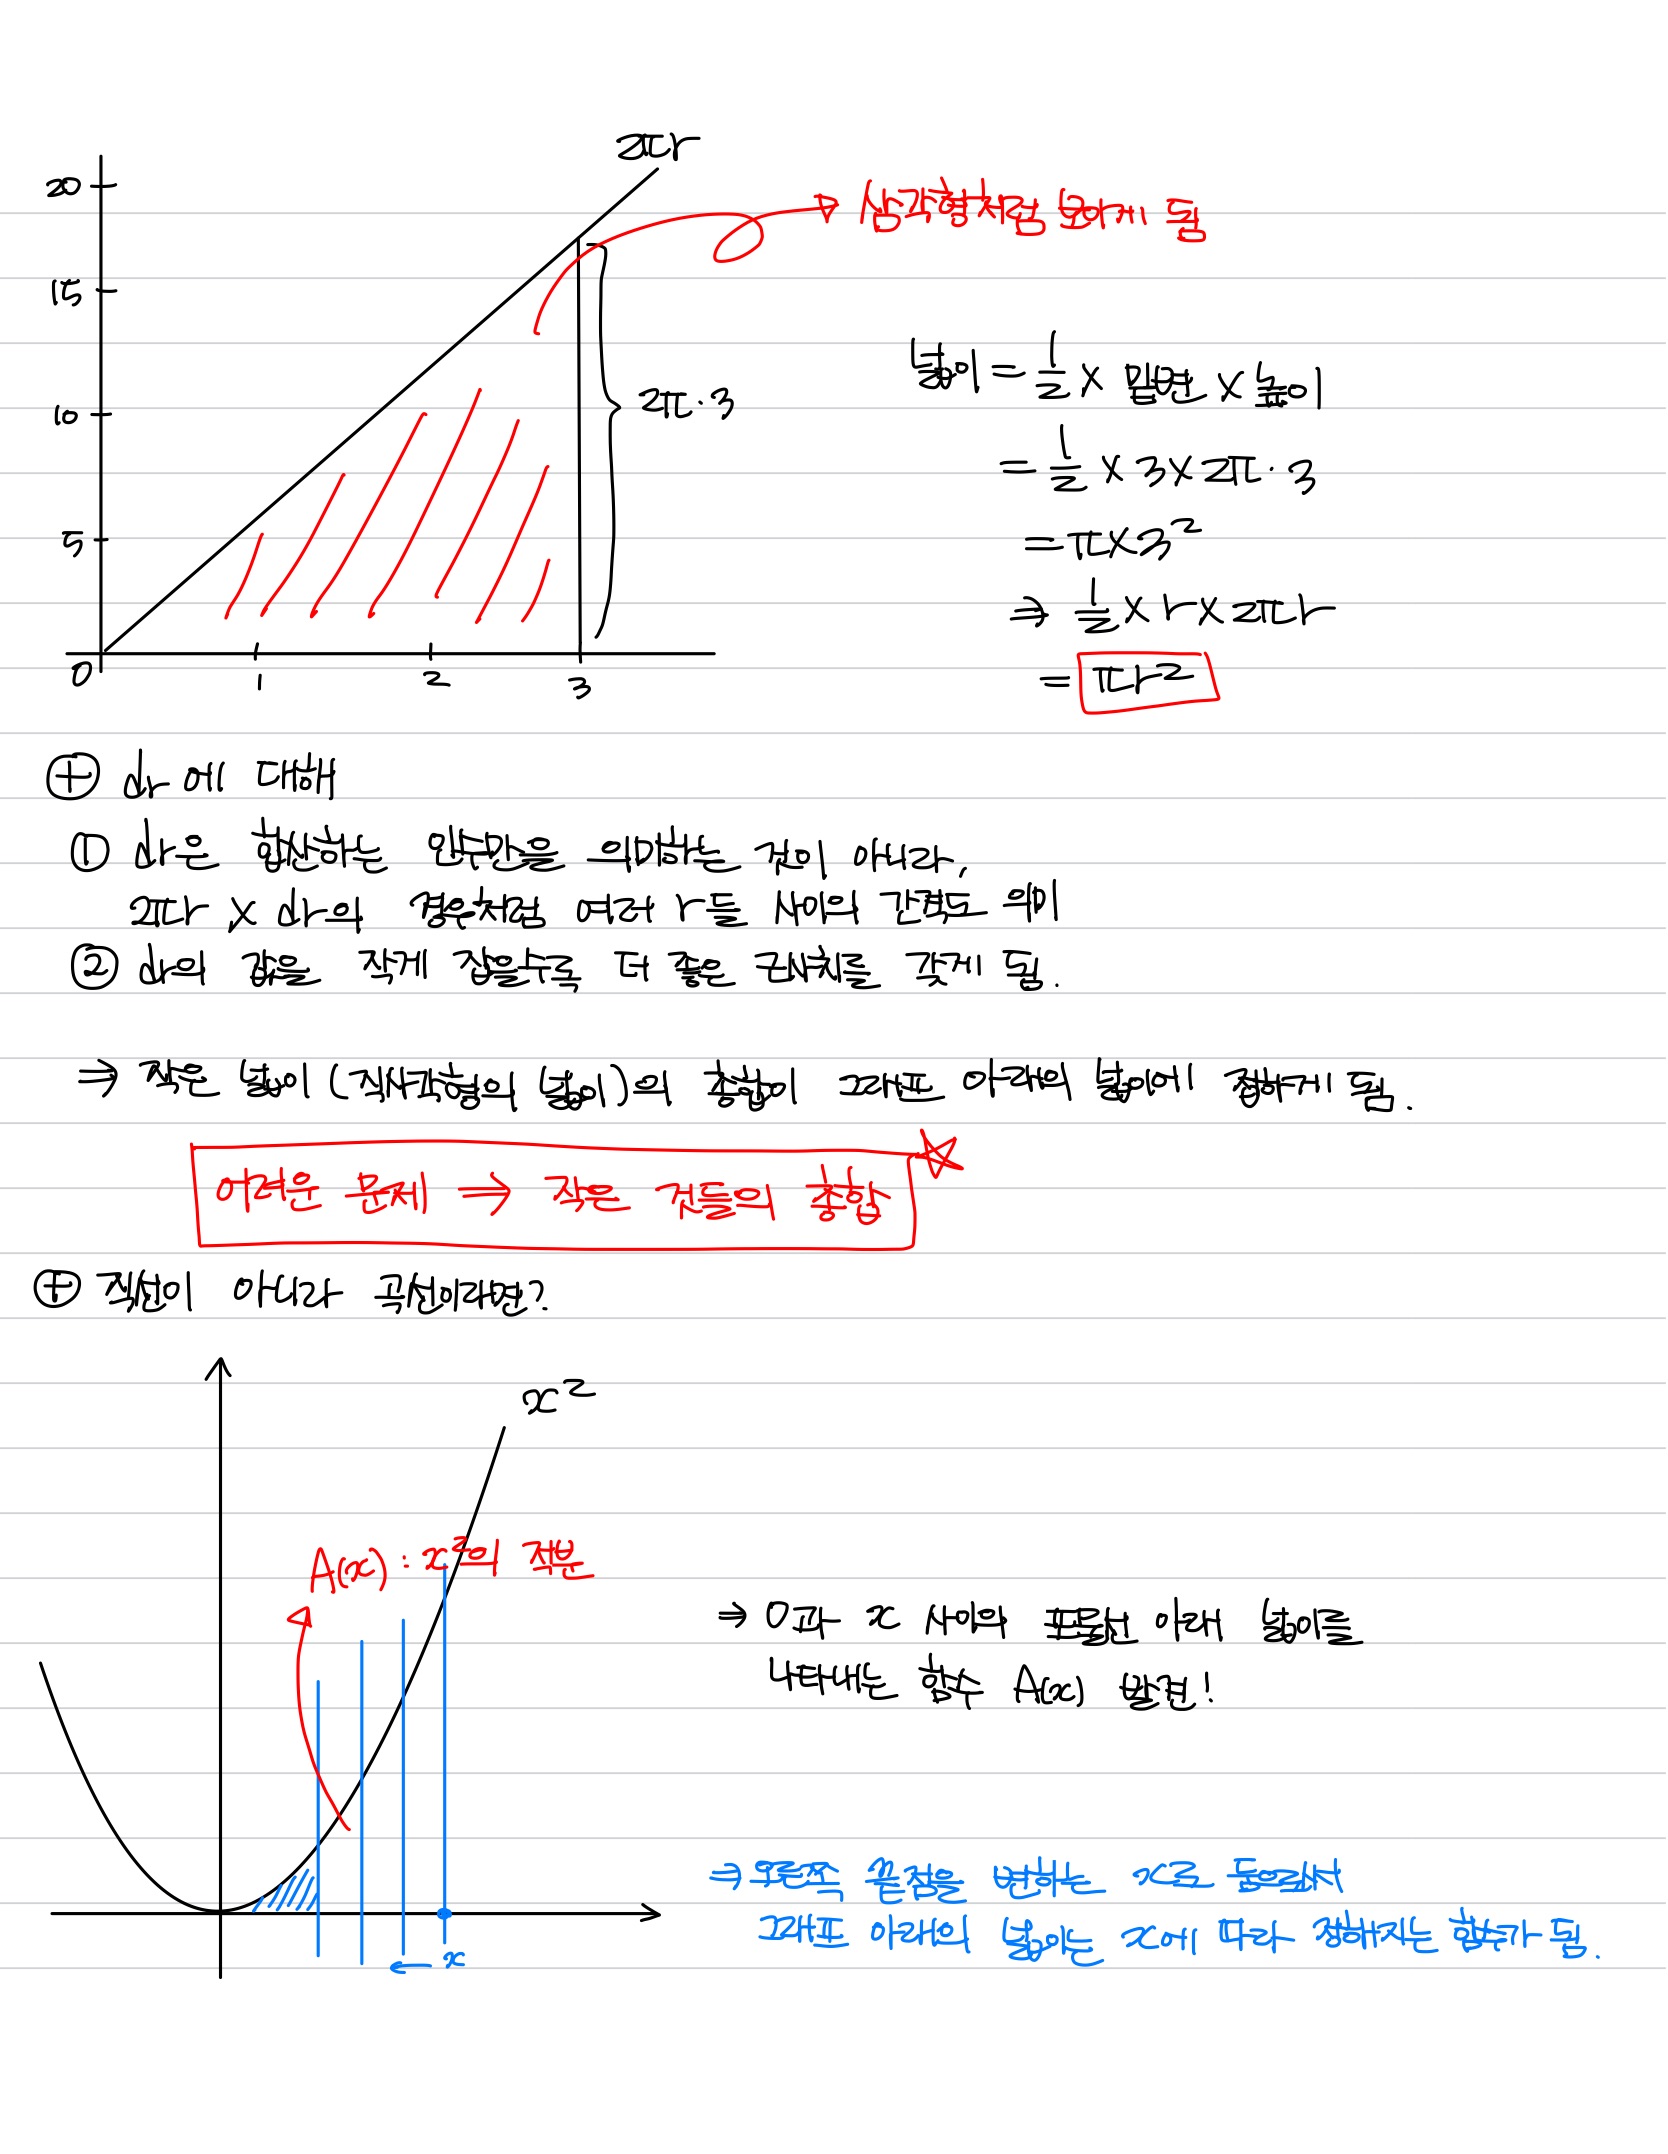 2πr
20
15
10
5
0
1
2
3
2π·3
삼각형처럼 보이게 됨
넓이 = 1/2 × 밑변 × 높이
= 1/2 × 3 × 2π·3
= π×3²
⇒ 1/2 × r × 2πr
= πr²
⊕ dr에 대해
① dr은 합산하는 인수만을 의미하는 것이 아니라,
2πr × dr의 경우처럼 여러 r들 사이의 간격도 의미
② dr의 값을 작게 잡을수록 더 좋은 근사치를 갖게 됨.
⇒ 작은 넓이 (직사각형의 넓이)의 총합이 그래프 아래의 넓이에 접하게 됨.
어려운 문제 ⇒ 작은 것들의 총합 ☆
⊕ 직선이 아니라 곡선이라면?
x²
A(x) : x²의 적분
⇒ 0과 x 사이의 포물선 아래 넓이를
나타내는 함수 A(x) 발견!
⇒ 오른쪽 끝점을 변하는 x로 둠으로써
그래프 아래의 넓이는 x에 따라 정해지는 함수가 됨.
← x